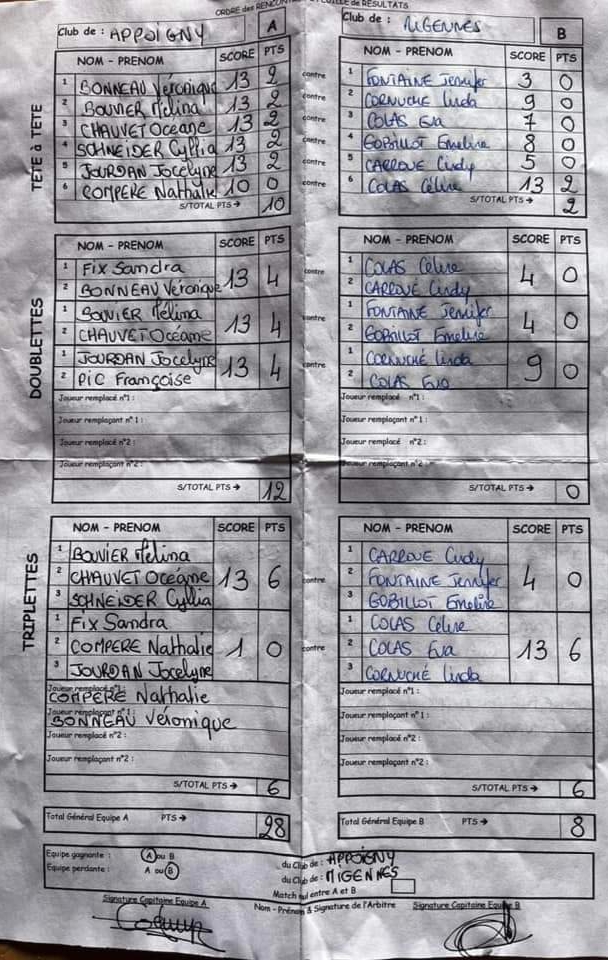 ORDRE des RENCONTRES et FEUILLE de RÉSULTATS
Club de : APPOIGNY A
TÊTE à TÊTE
NOM - PRENOM SCORE PTS
1 BONNEAU Véronique 13 2
2 BOUVIER Mélina 13 2
3 CHAUVET Océane 13 2
4 SCHNEIDER Cyllia 13 2
5 JOURDAN Jocelyne 13 2
6 COMPERE Nathalie 10 0
S/TOTAL PTS → 10
contre
contre
contre
contre
contre
contre
Club de : MIGENNES B
NOM - PRENOM SCORE PTS
1 FONTAINE Jennifer 3 0
2 CORNUCHE Linda 9 0
3 COLAS Eva 7 0
4 GOBILLOT Emeline 8 0
5 CARROUE Cindy 5 0
6 COLAS Céline 13 2
S/TOTAL PTS → 2
DOUBLETTES
NOM - PRENOM SCORE PTS
1 FIX Sandra
2 BONNEAU Véronique 13 4
1 BOUVIER Mélina
2 CHAUVET Océane 13 4
1 JOURDAN Jocelyne
2 PIC Françoise 13 4
Joueur remplacé n°1 :
Joueur remplaçant n°1 :
Joueur remplacé n°2 :
Joueur remplaçant n°2 :
S/TOTAL PTS → 12
contre
contre
contre
NOM - PRENOM SCORE PTS
1 COLAS Céline
2 CARROUE Cindy 4 0
1 FONTAINE Jennifer
2 GOBILLOT Emeline 4 0
1 CORNUCHÉ Linda
2 COLAS Eva 9 0
Joueur remplacé n°1 :
Joueur remplaçant n°1 :
Joueur remplacé n°2 :
Joueur remplaçant n°2 :
S/TOTAL PTS → 0
TRIPLETTES
NOM - PRENOM SCORE PTS
1 BOUVIER Mélina
2 CHAUVET Océane 13 6
3 SCHNEIDER Cyllia
1 FIX Sandra
2 COMPERE Nathalie 1 0
3 JOURDAN Jocelyne
Joueur remplacé n°1 :
COMPERE Nathalie
Joueur remplaçant n°1 :
BONNEAU Véronique
Joueur remplacé n°2 :
Joueur remplaçant n°2 :
S/TOTAL PTS → 6
contre
contre
NOM - PRENOM SCORE PTS
1 CARROUE Cindy
2 FONTAINE Jennifer 4 0
3 GOBILLOT Emeline
1 COLAS Céline
2 COLAS Eva 13 6
3 CORNUCHÉ Linda
Joueur remplacé n°1 :
Joueur remplaçant n°1 :
Joueur remplacé n°2 :
Joueur remplaçant n°2 :
S/TOTAL PTS → 6
Total Général Equipe A PTS → 28
Total Général Equipe B PTS → 8
Equipe gagnante : A ou B du Club de : APPOIGNY
Equipe perdante : A ou B du Club de : MIGENNES
Match nul entre A et B
Signature Capitaine Equipe A
Nom - Prénom & Signature de l'Arbitre
Signature Capitaine Equipe B